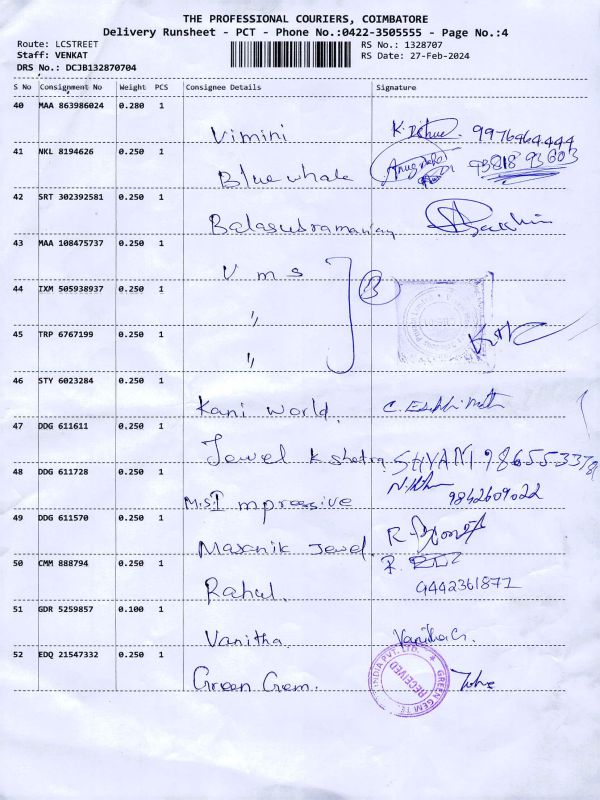 THE PROFESSIONAL COURIERS, COIMBATORE
Delivery Runsheet - PCT - Phone No.:0422-3505555 - Page No.:4
Route: LCSTREET
Staff: VENKAT
DRS No.: DCJB132870704
RS No.: 1328707
RS Date: 27-Feb-2024
S No Consignment No Weight PCS Consignee Details Signature
40 MAA 863986024 0.280 1 Vimini 9976464444
41 NKL 8194626 0.250 1 Blue whale 93818 93603
42 SRT 302392581 0.250 1 Balasubramaniyan
43 MAA 108475737 0.250 1 V m s
44 IXM 505938937 0.250 1 "
45 TRP 6767199 0.250 1 "
46 STY 6023284 0.250 1 Kani world.
47 DDG 611611 0.250 1 Jewel kshetra
48 DDG 611728 0.250 1 M.S.Impressive 9842609022
49 DDG 611570 0.250 1 Masanik Jewel.
50 CMM 888794 0.250 1 Rahul. 9442361871
51 GDR 5259857 0.100 1 Vanitha. Vanitha G.
52 EDQ 21547332 0.250 1 Green Gem. INDIA PVT. LTD. RECEIVED GREEN GEM TE